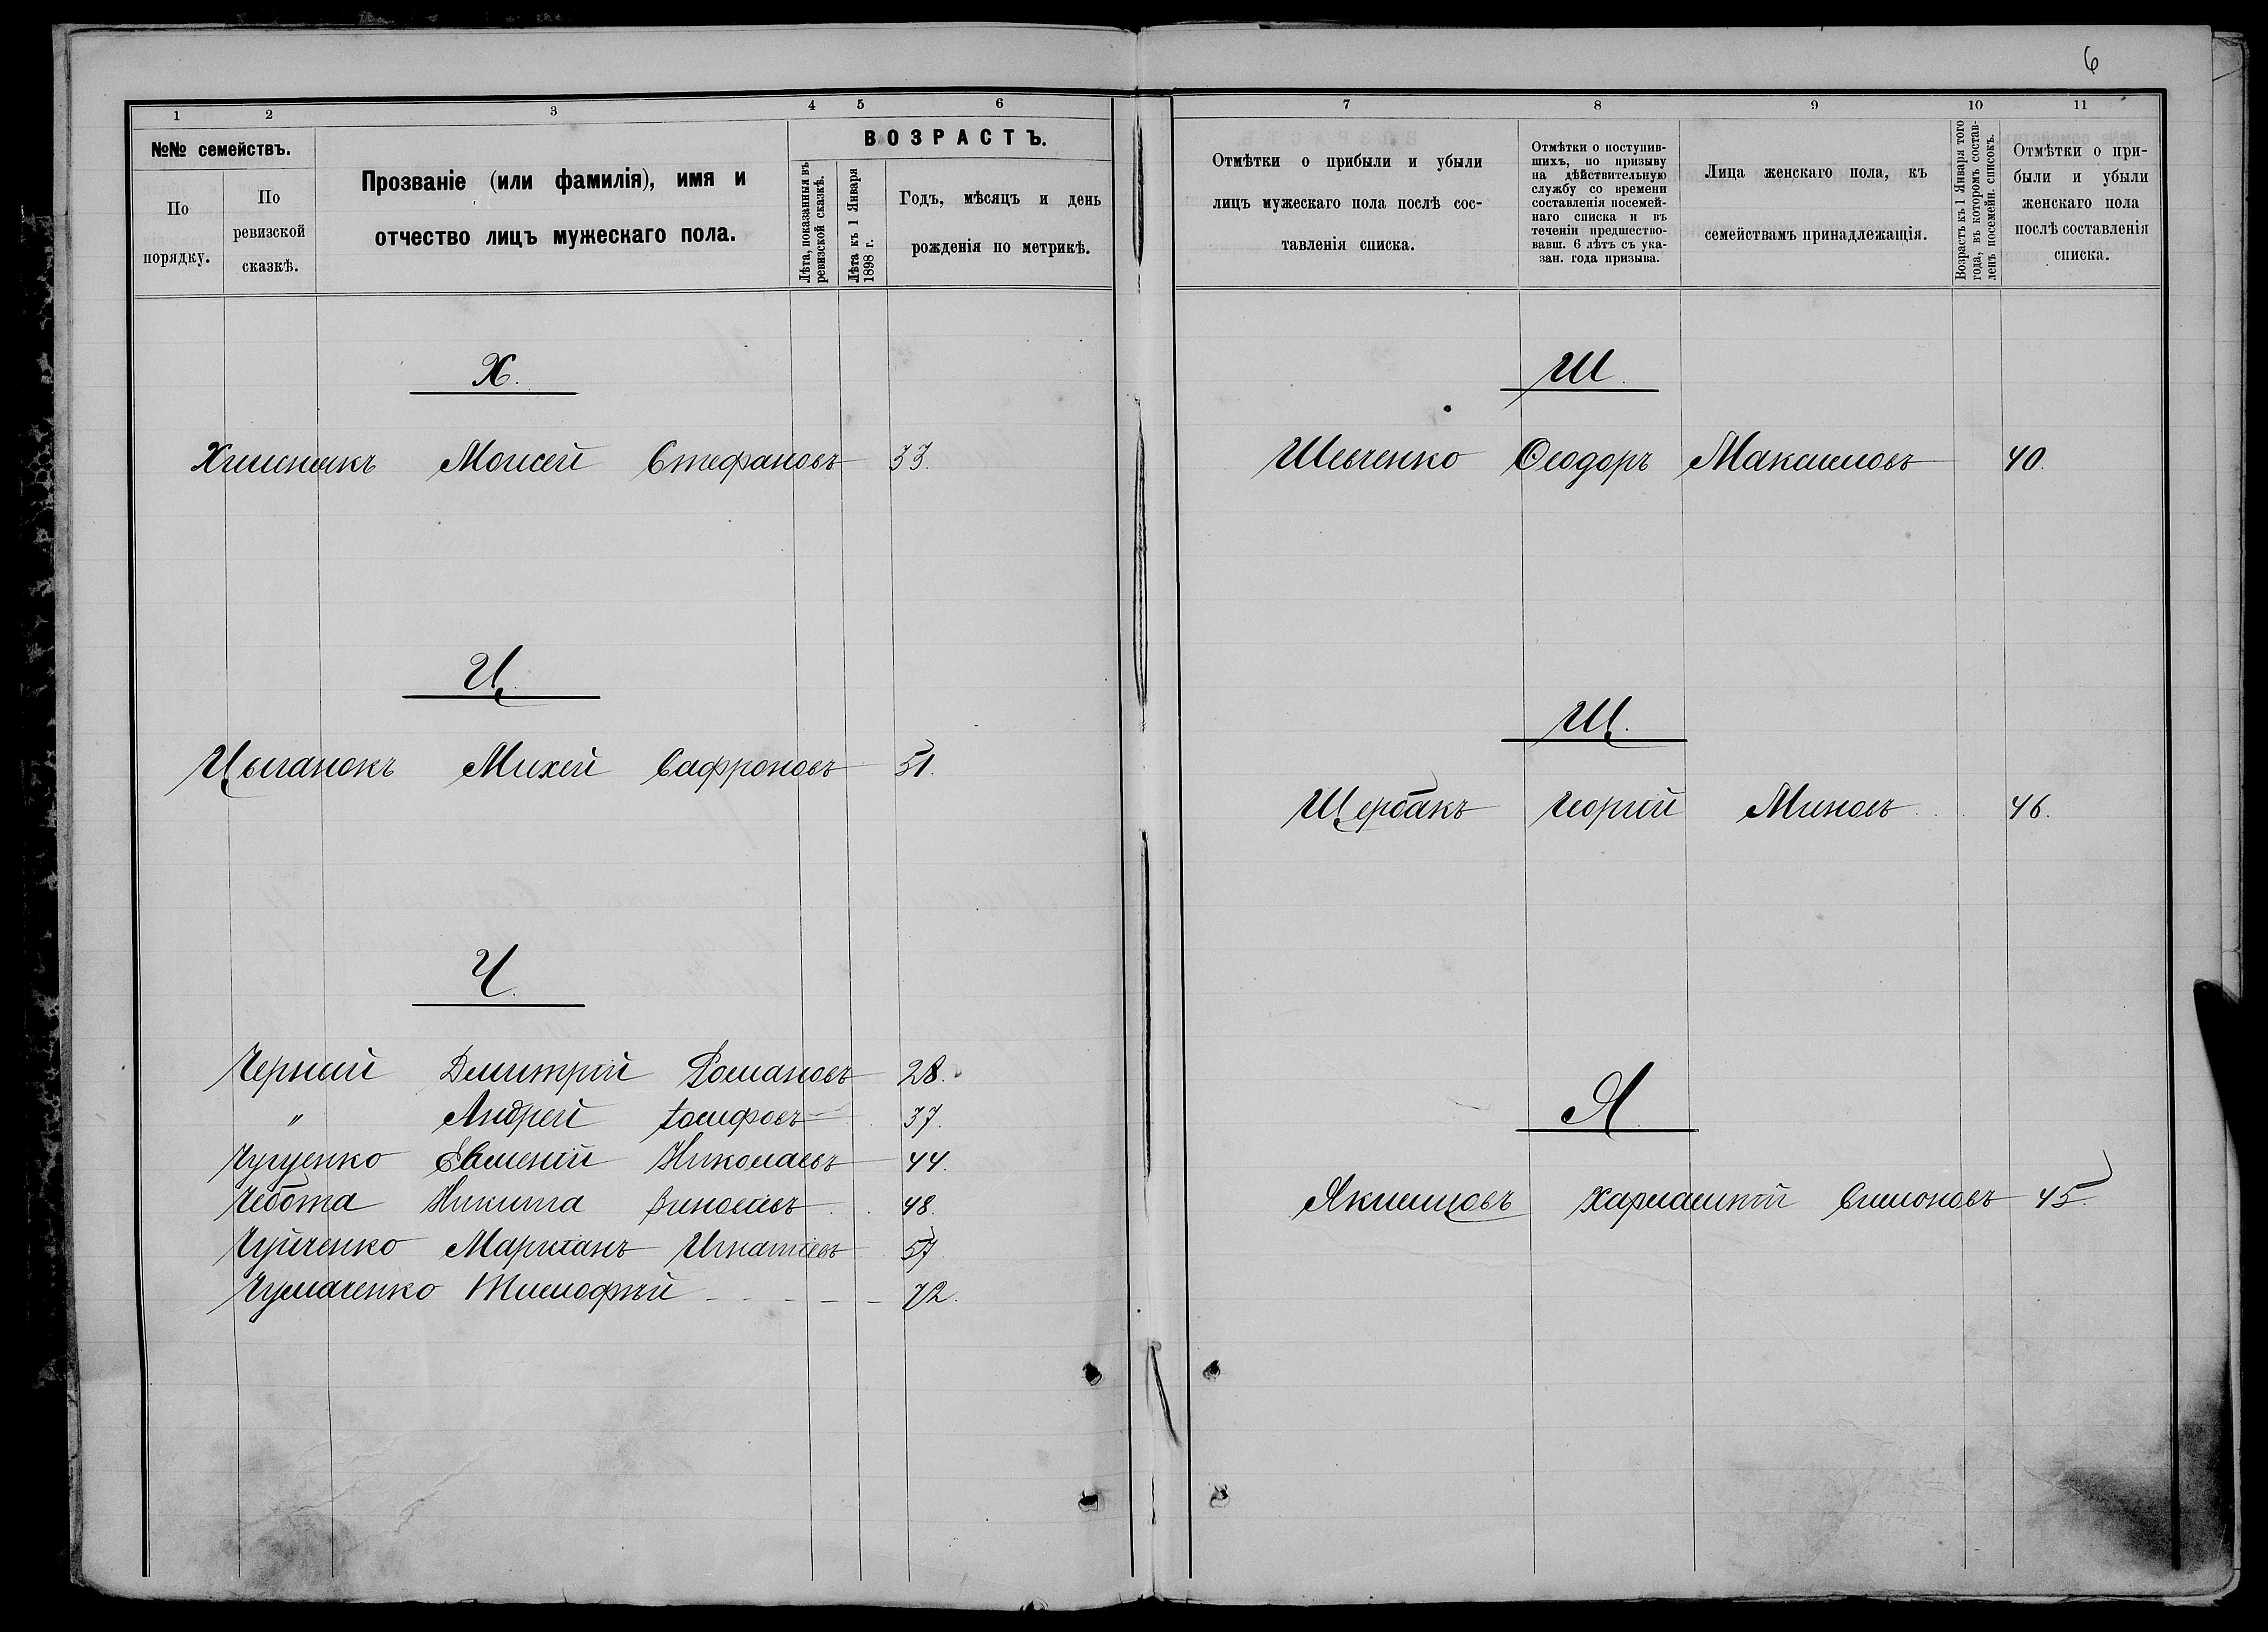 6
1 2 3 4 5 6
№№ семействъ.
По порядку.
По ревизской сказкѣ.
Прозваніе (или фамилія), имя и
отчество лицъ мужескаго пола.
ВОЗРАСТЪ.
Лѣта, показанныя въ
ревизской сказкѣ.
Лѣта къ 1 Января
1898 г.
Годъ, мѣсяцъ и день
рожденія по метрикѣ.
Х.
Моисей Стефановъ 33.
Ц.
Цыганокъ Михей Сафроновъ 51.
Ч.
Черный Дмитрій Романовъ 28.
" Андрей 37.
Евменій Николаевъ 44.
Чебота Никита 48.
Чуйченко Маркіанъ Игнатіевъ 57
Чумаченко Тимофѣй - - - - - 72.
7 8 9 10 11
Отмѣтки о прибыли и убыли
лицъ мужескаго пола послѣ сос-
тавленія списка.
Отмѣтки о поступив-
шихъ, по призыву
на дѣйствительную
службу со времени
составленія посемей-
наго списка и въ
теченіи предшество-
вавш. 6 лѣтъ съ ука-
зан. года призыва.
Лица женскаго пола, къ
семействамъ принадлежащія.
Возрастъ къ 1 Января того
года, въ которомъ состав-
ленъ посемейн. списокъ.
Отмѣтки о при-
были и убыли
женскаго пола
послѣ составленія
списка.
Ш.
Шевченко Ѳеодоръ Максимовъ 40.
Щ.
Щербакъ Георгій Миновъ 46.
Я
Якимцовъ Харлампій Симоновъ 45.